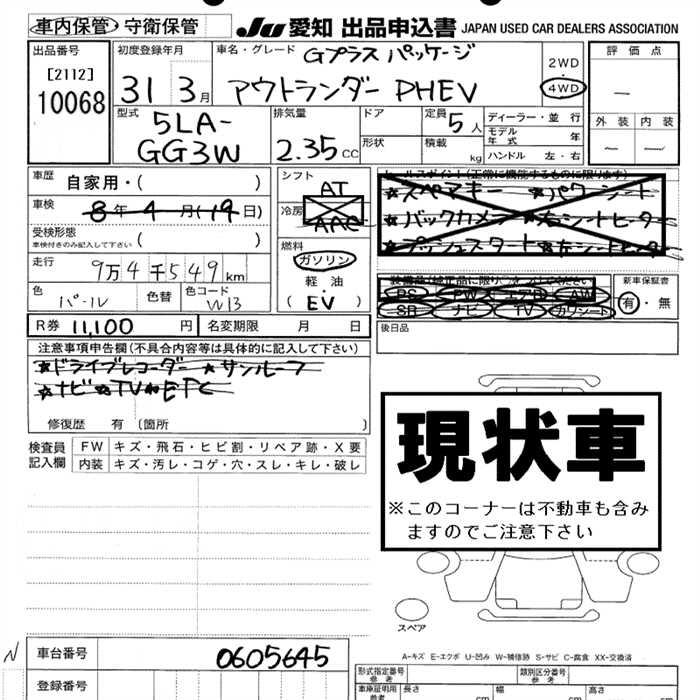 車内保管 守衛保管 JU 愛知 出品申込書 JAPAN USED CAR DEALERS ASSOCIATION
出品番号 初度登録年月 車名・グレード Gプラス パッケージ 2WD 評価点
[2112] 10068 31 3月 アウトランダー PHEV 4WD
外装 内装
型式 5LA-GG3W 排気量 2.35 CC ドア 定員 5人 ディーラー・並行
形状 積載 kg モデル年式 年
ハンドル 左・右
車歴 自家用・( ) シフト AT セールスポイント(正常に機能するものに限ります)
車検 8年 4月(19日) 冷房 AAC
★スペアキー ★パワーシート
★バックカメラ ★右シートヒーター
★プッシュスタート ★左シートヒーター
受検形態 ( )
車検付きのみ記入して下さい
燃料 ガソリン・軽油 (EV)
走行 9万4千549km
装備品(純正品に限り
ください 新車保証書
PS PW エアB AW
SR ナビ TV カワシート 有・無
色 パール 色替 色コード W13
後日品
R券 11,100 円 名変期限 月 日
注意事項申告欄(不具合内容等は具体的に記入して下さい)
★ドライブレコーダー ★サンルーフ
★ナビ ★TV ★ETC
修復歴 有 (箇所 )
検査員記入欄 FW キズ・飛石・ヒビ割・リペア跡・X要
内装 キズ・汚レ・コゲ・穴・スレ・キレ・破レ
現状車
※このコーナーは不動車も含み
ますのでご注意下さい
スペア
A-キズ E-エクボ U-凹み W-補修跡 S-サビ C-腐食 XX-交換済
N 車台番号 0605645
登録番号
形式指定番号 参考 類別区分番号 参考
車庫証明用 参考 長さ cm 幅 cm 高さ cm